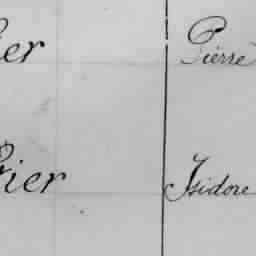 er Pierre
ier Isidore